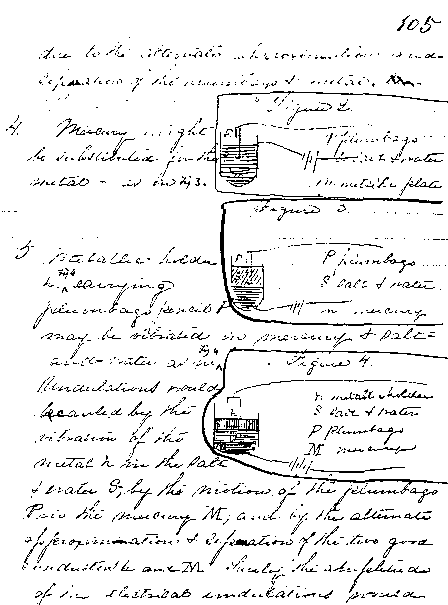 105
due to the alternate approximation and
separation of the plumbago & metal.
Figure 2.
P plumbago
S salt & water
m metallic plate
4. Mercury might
be substituted for the
metal - as in Fig 3.
Figure 3.
P plumbago
S salt & water
m mercury
5 Metallic holder
h, Fig 4 carrying
plumbago pencil P
may be vibrated in mercury & salt-
and-water as in Fig 4
Figure 4.
h metal holder
S salt & water
P plumbago
M mercury
Undulations would
be caused by the
vibration of the
metal h in the salt
& water S, by the motion of the plumbago
P in the mercury M, and by the alternate
approximation & separation of the two good
conductors h and M. Surely the amplitude
of the electrical undulations would